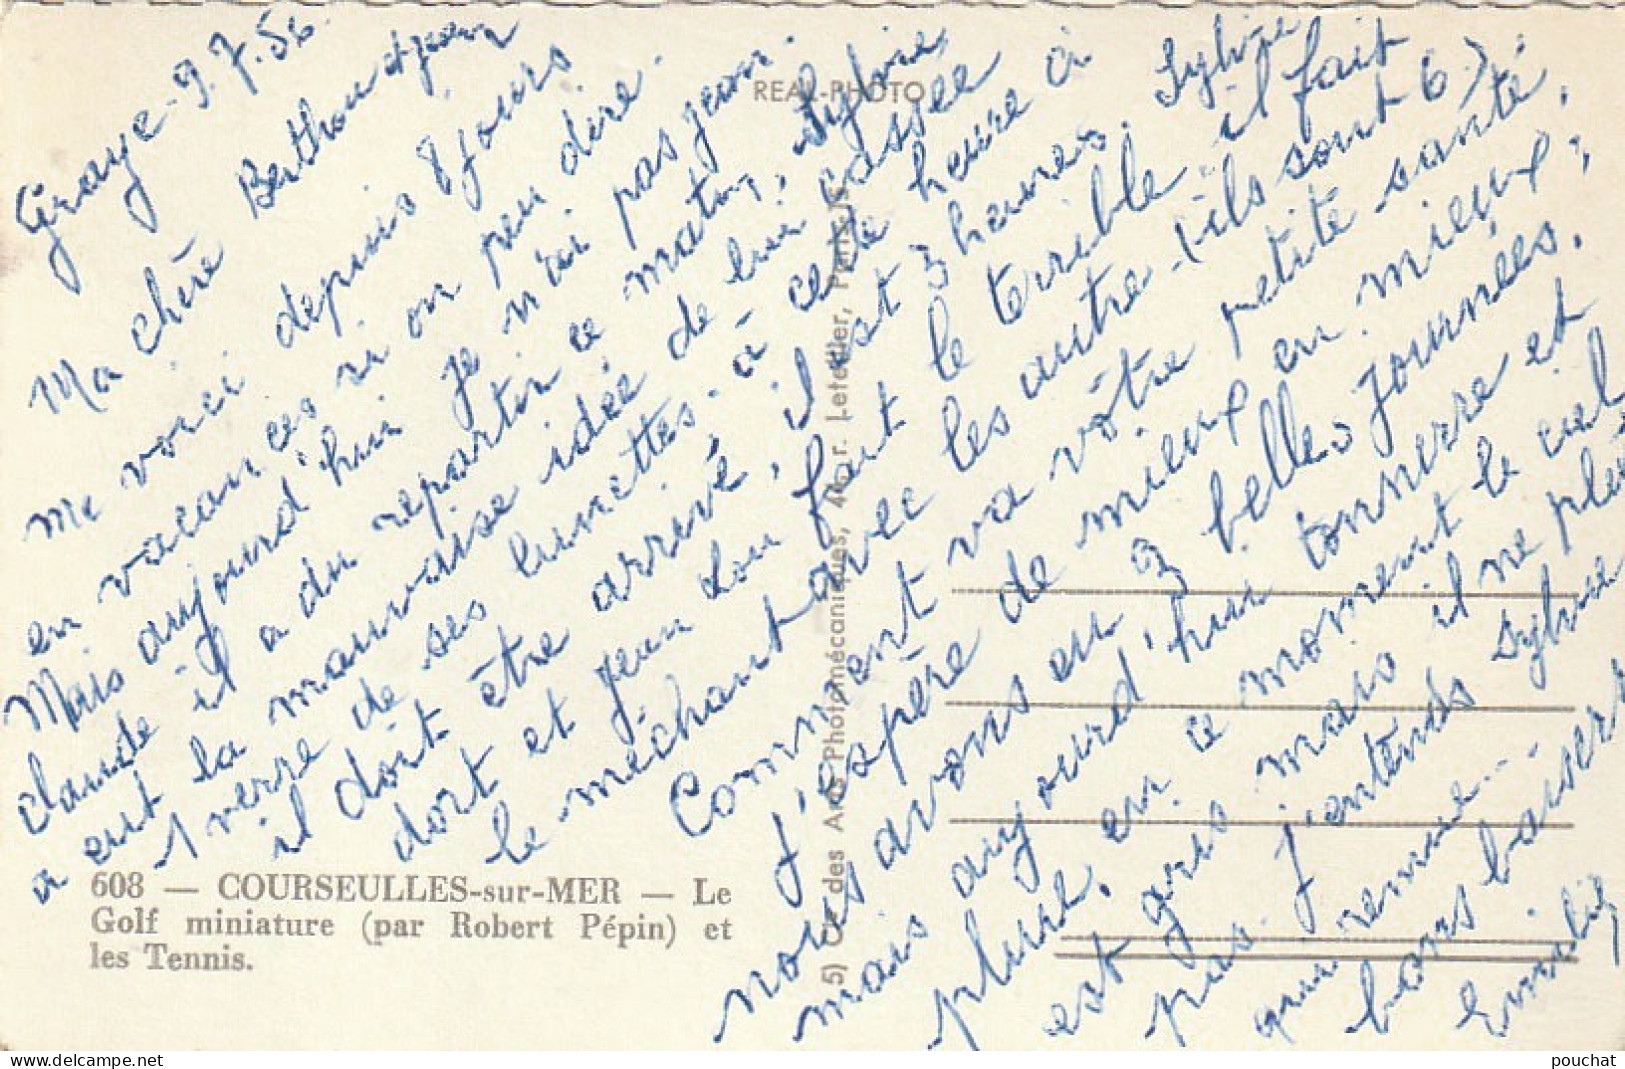 Graye. 9.7.56.
Ma chère Berthou et Jean
me voici depuis 8 jours
en vacances si on peu dire.
Mais aujourd'hui je n'ai pas Jean.
claude il a du repartir ce matin, Sylvie
a eut la mauvaise idée de lui cassée
1 verre de ses lunettes. a cette heure ci
il doit être arrivé, il est 3 heures. Sylvie
dort et Jean Lou fait le terrible il fait
le méchant avec les autre. (ils sont 6).
Comment va vôtre petite santé.
J'espère de mieux en mieux,
nous avons eu 3 belles journées,
mais aujourd'hui tonnerre et
pluie. en ce moment le ciel
est gris mais il ne pleut
pas. J'entends Sylvie
qui remue...
bons baisers
Emilie
REAL-PHOTO
5) Cie des Arts Photomécaniques, 44, r. Letellier, Paris-15
608 — COURSEULLES-sur-MER — Le
Golf miniature (par Robert Pépin) et
les Tennis.
pouchat